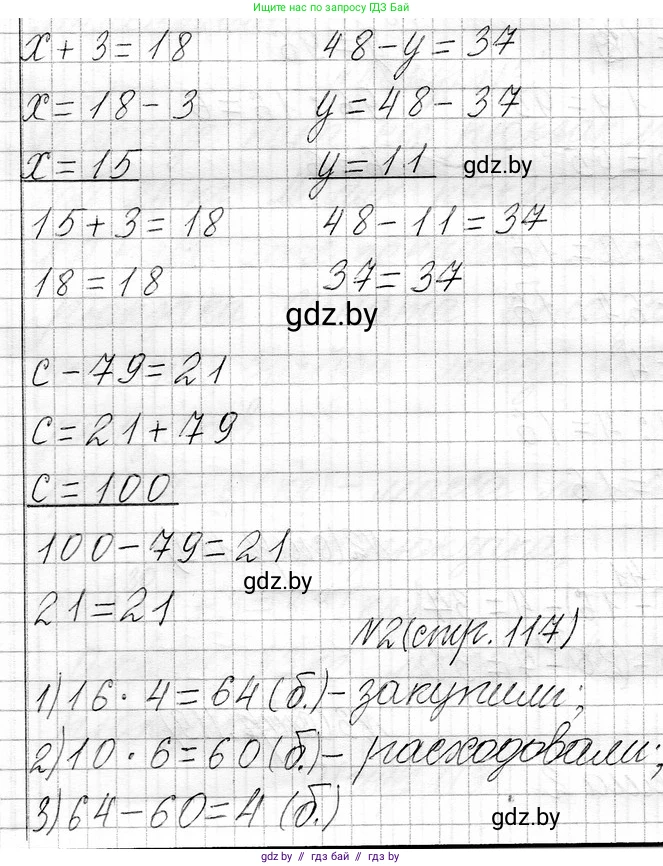 Ещё больше решебников по запросу ГДЗ Бай
x + 3 = 18 48 - y = 37
x = 18 - 3 y = 48 - 37
x = 15 y = 11 gdz.by
15 + 3 = 18 48 - 11 = 37
18 = 18 37 = 37
gdz.by
c - 79 = 21
c = 21 + 79
c = 100
100 - 79 = 21
gdz.by
21 = 21
N2 (стр. 117)
1) 16 · 4 = 64 (б.) - закупили;
2) 10 · 6 = 60 (б.) - расходовали;
3) 64 - 60 = 4 (б.)
gdz.by
gdz.by // гдз бай // гдз by